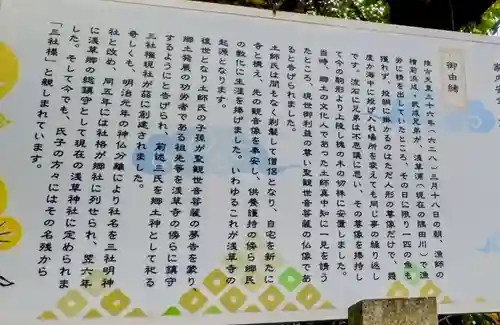 御由緒
推古天皇三十六年（六二八）三月十八日の朝、漁師の
檜前浜成・武成兄弟が、浅草浦（現在の隅田川）で漁
労に精を出していたところ、その日に限り一匹の魚も
獲れず、投網に掛かるのはただ人形の尊像だけで、幾
度か海中に投げ入れ場所を変えても同じ事の繰り返し
です。流石に兄弟は不思議に思い、その尊像を捧持し
て今の駒形より上陸し槐の木の切株に安置しました。
当時、郷土の文化人であった土師真中知に一見を請う
たところ、現世御利益の尊い聖観世音菩薩の仏像であ
ると告げられました。
土師氏は間もなく剃髪して僧侶となり、自宅を新たに
寺と構え、先の観音像を奉安し、供養護持の傍ら郷民
の教化に生涯を捧げました。いわゆるこれが浅草寺の
起源となります。
後世となり土師氏の子孫が聖観世音菩薩の夢告を蒙り
郷土発展の功労者である祖先等を浅草寺の傍らに鎮守
するようにと告げられ、前述三氏を郷土神として祀る
三社権現社が茲に創建されました。
奇しくも、明治元年の神仏分離により社名を三社明神
社と改め、同五年には社格が郷社に列せられ、翌六年
に浅草郷の総鎮守として現在の浅草神社に定められま
した。そして今でも、氏子の方々にはその名残から
「三社様」と親しまれています。